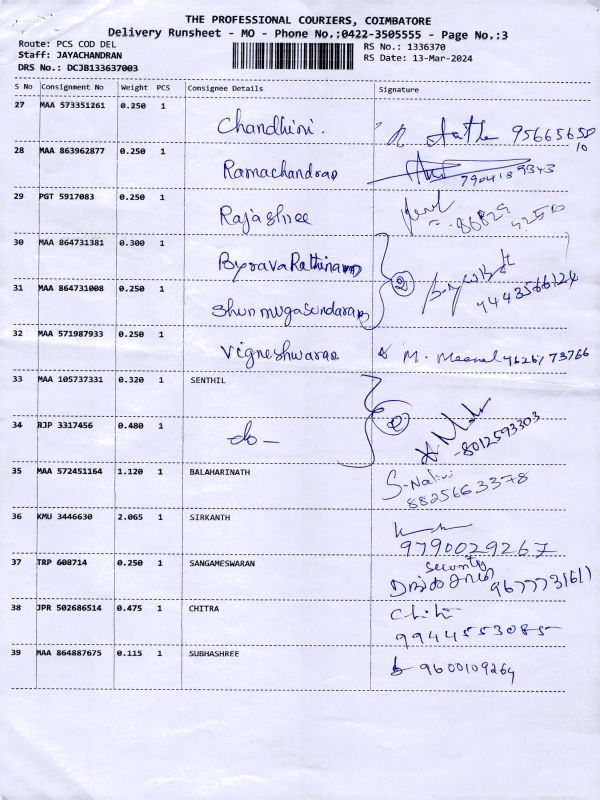 THE PROFESSIONAL COURIERS, COIMBATORE
Delivery Runsheet - MO - Phone No.:0422-3505555 - Page No.:3
Route: PCS COD DEL
RS No.: 1336370
Staff: JAYACHANDRAN
RS Date: 13-Mar-2024
DRS No.: DCJB133637003
S No Consignment No Weight PCS Consignee Details Signature
27 MAA 573351261 0.250 1 Chandhini. 95665650
10
28 MAA 863962877 0.250 1 Ramachandran
29 PGT 5917083 0.250 1 Rajashree
30 MAA 864731381 0.300 1 Byrava Rathinam
31 MAA 864731008 0.250 1 Shunmugasundaram 2 9443566124
32 MAA 571987933 0.250 1 Vigneshwaran M. Meenal 9626173766
33 MAA 105737331 0.320 1 SENTHIL
34 RJP 3317456 0.480 1 -do- -8012593303
35 MAA 572451164 1.120 1 BALAHARINATH S-Nalini
8825663378
36 KMU 3446630 2.065 1 SIRKANTH
9790029267
37 TRP 608714 0.250 1 SANGAMESWARAN Security
9677731611
38 JPR 502686514 0.475 1 CHITRA Chitra
9944553085
39 MAA 864887675 0.115 1 SUBHASHREE 9600109264